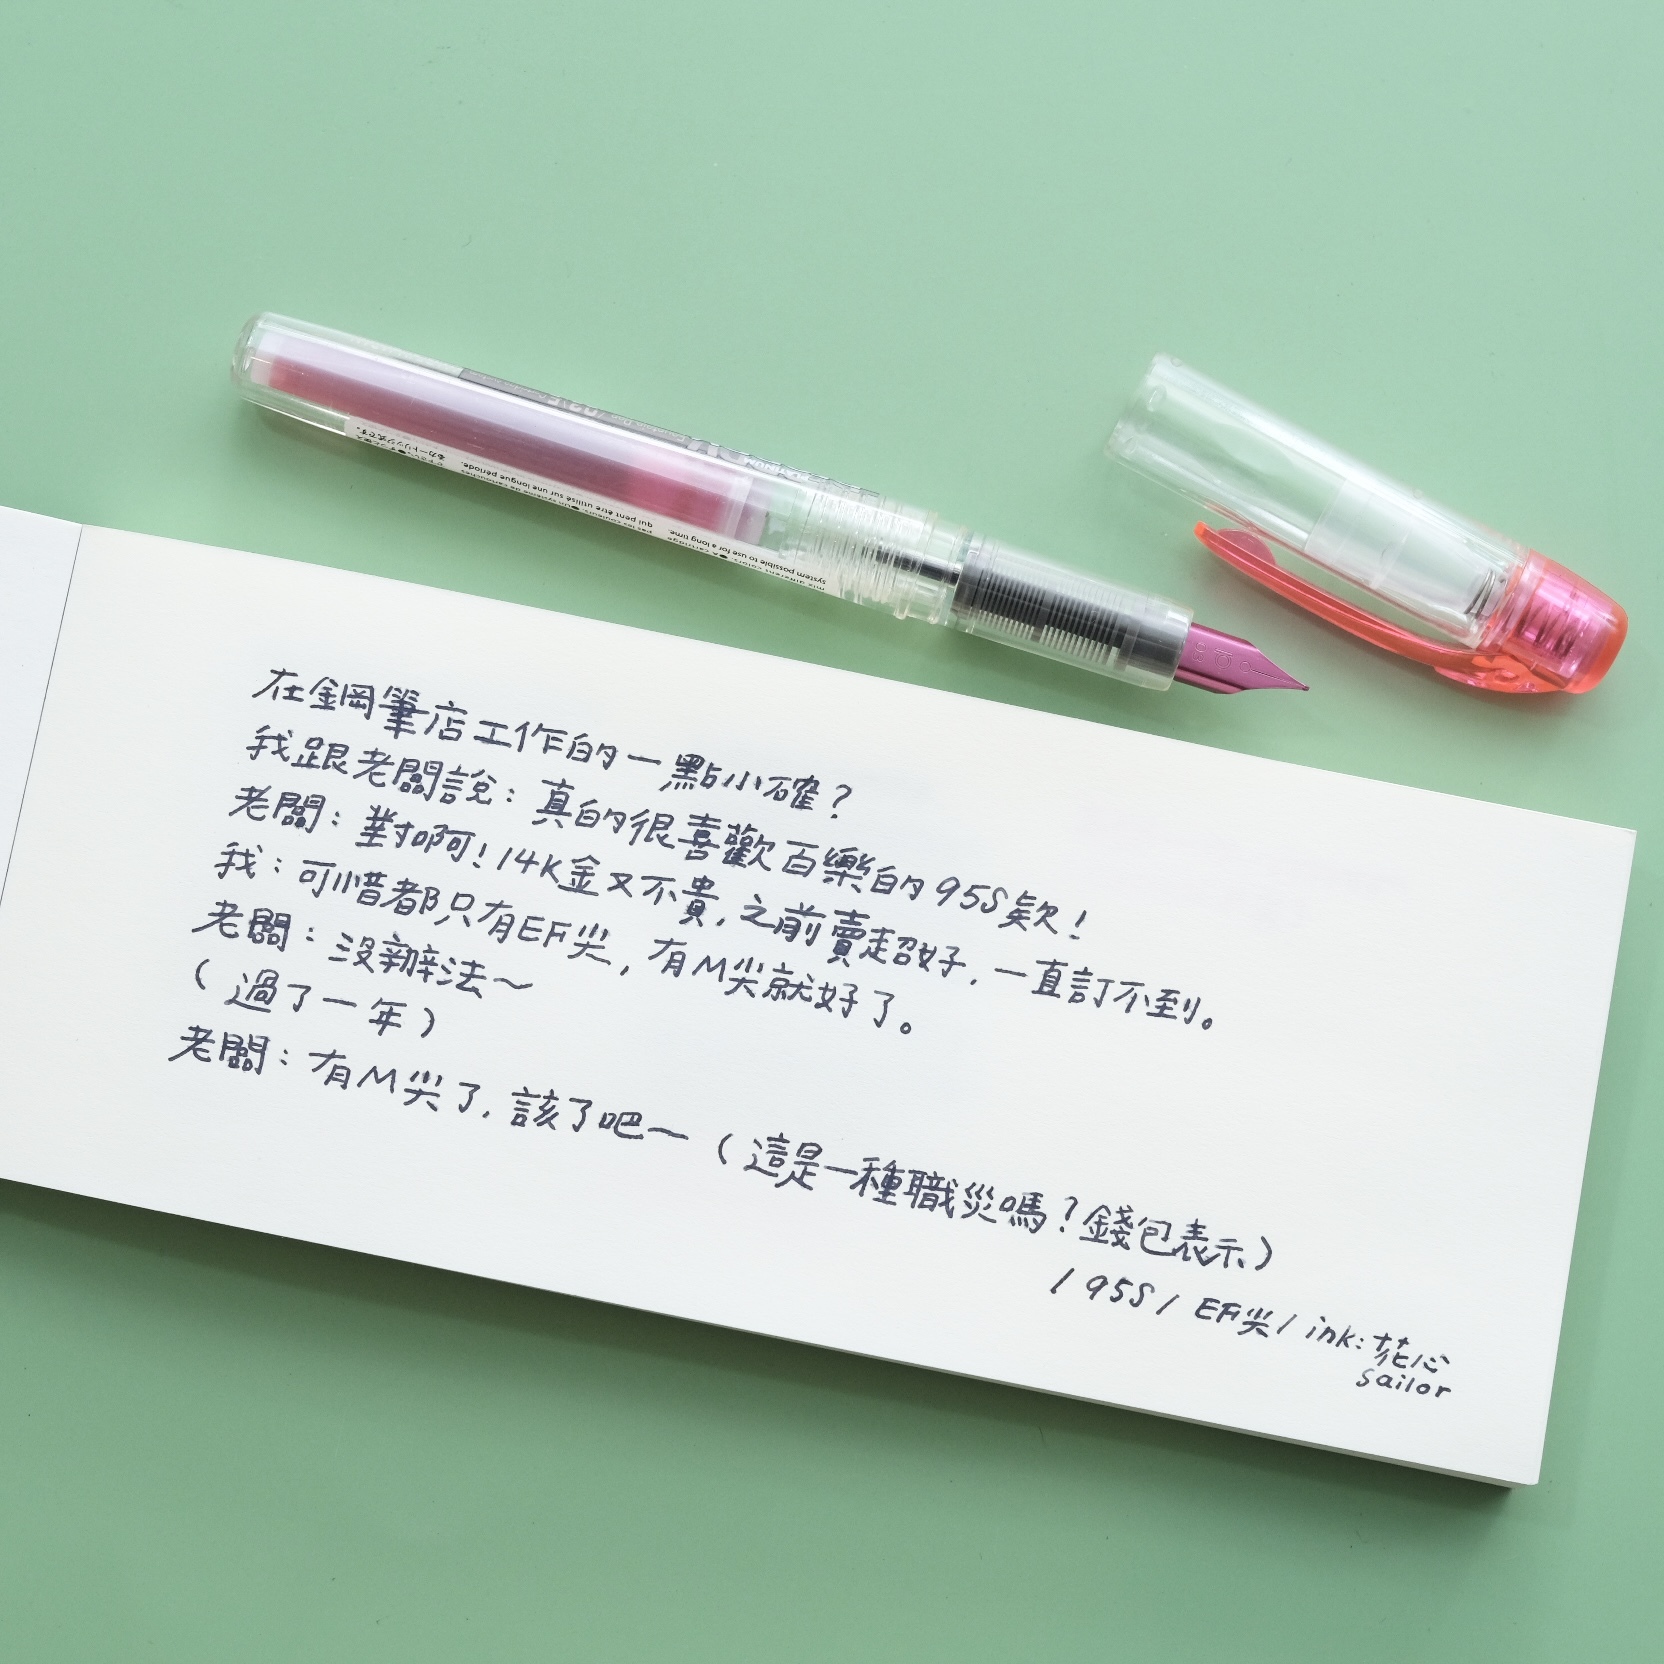 在鋼筆店工作的一點小確？
我跟老闆說：真的很喜歡百樂的95S欸！
老闆：對啊！14K金又不貴，之前賣超好，一直訂不到。
我：可惜都只有EF尖，有M尖就好了。
老闆：沒辦法～
（過了一年）
老闆：有M尖了，該了吧～（這是一種職災嗎？錢包表示）
/ 95S / EF尖 / ink：花心
sailor
mix different colors. ●A cartridge
system possible to use for a long time.
pas les couleurs. ●Un système de cartouches
qui peut être utilisé sur une longue période.
るカートリッジ式です。
03